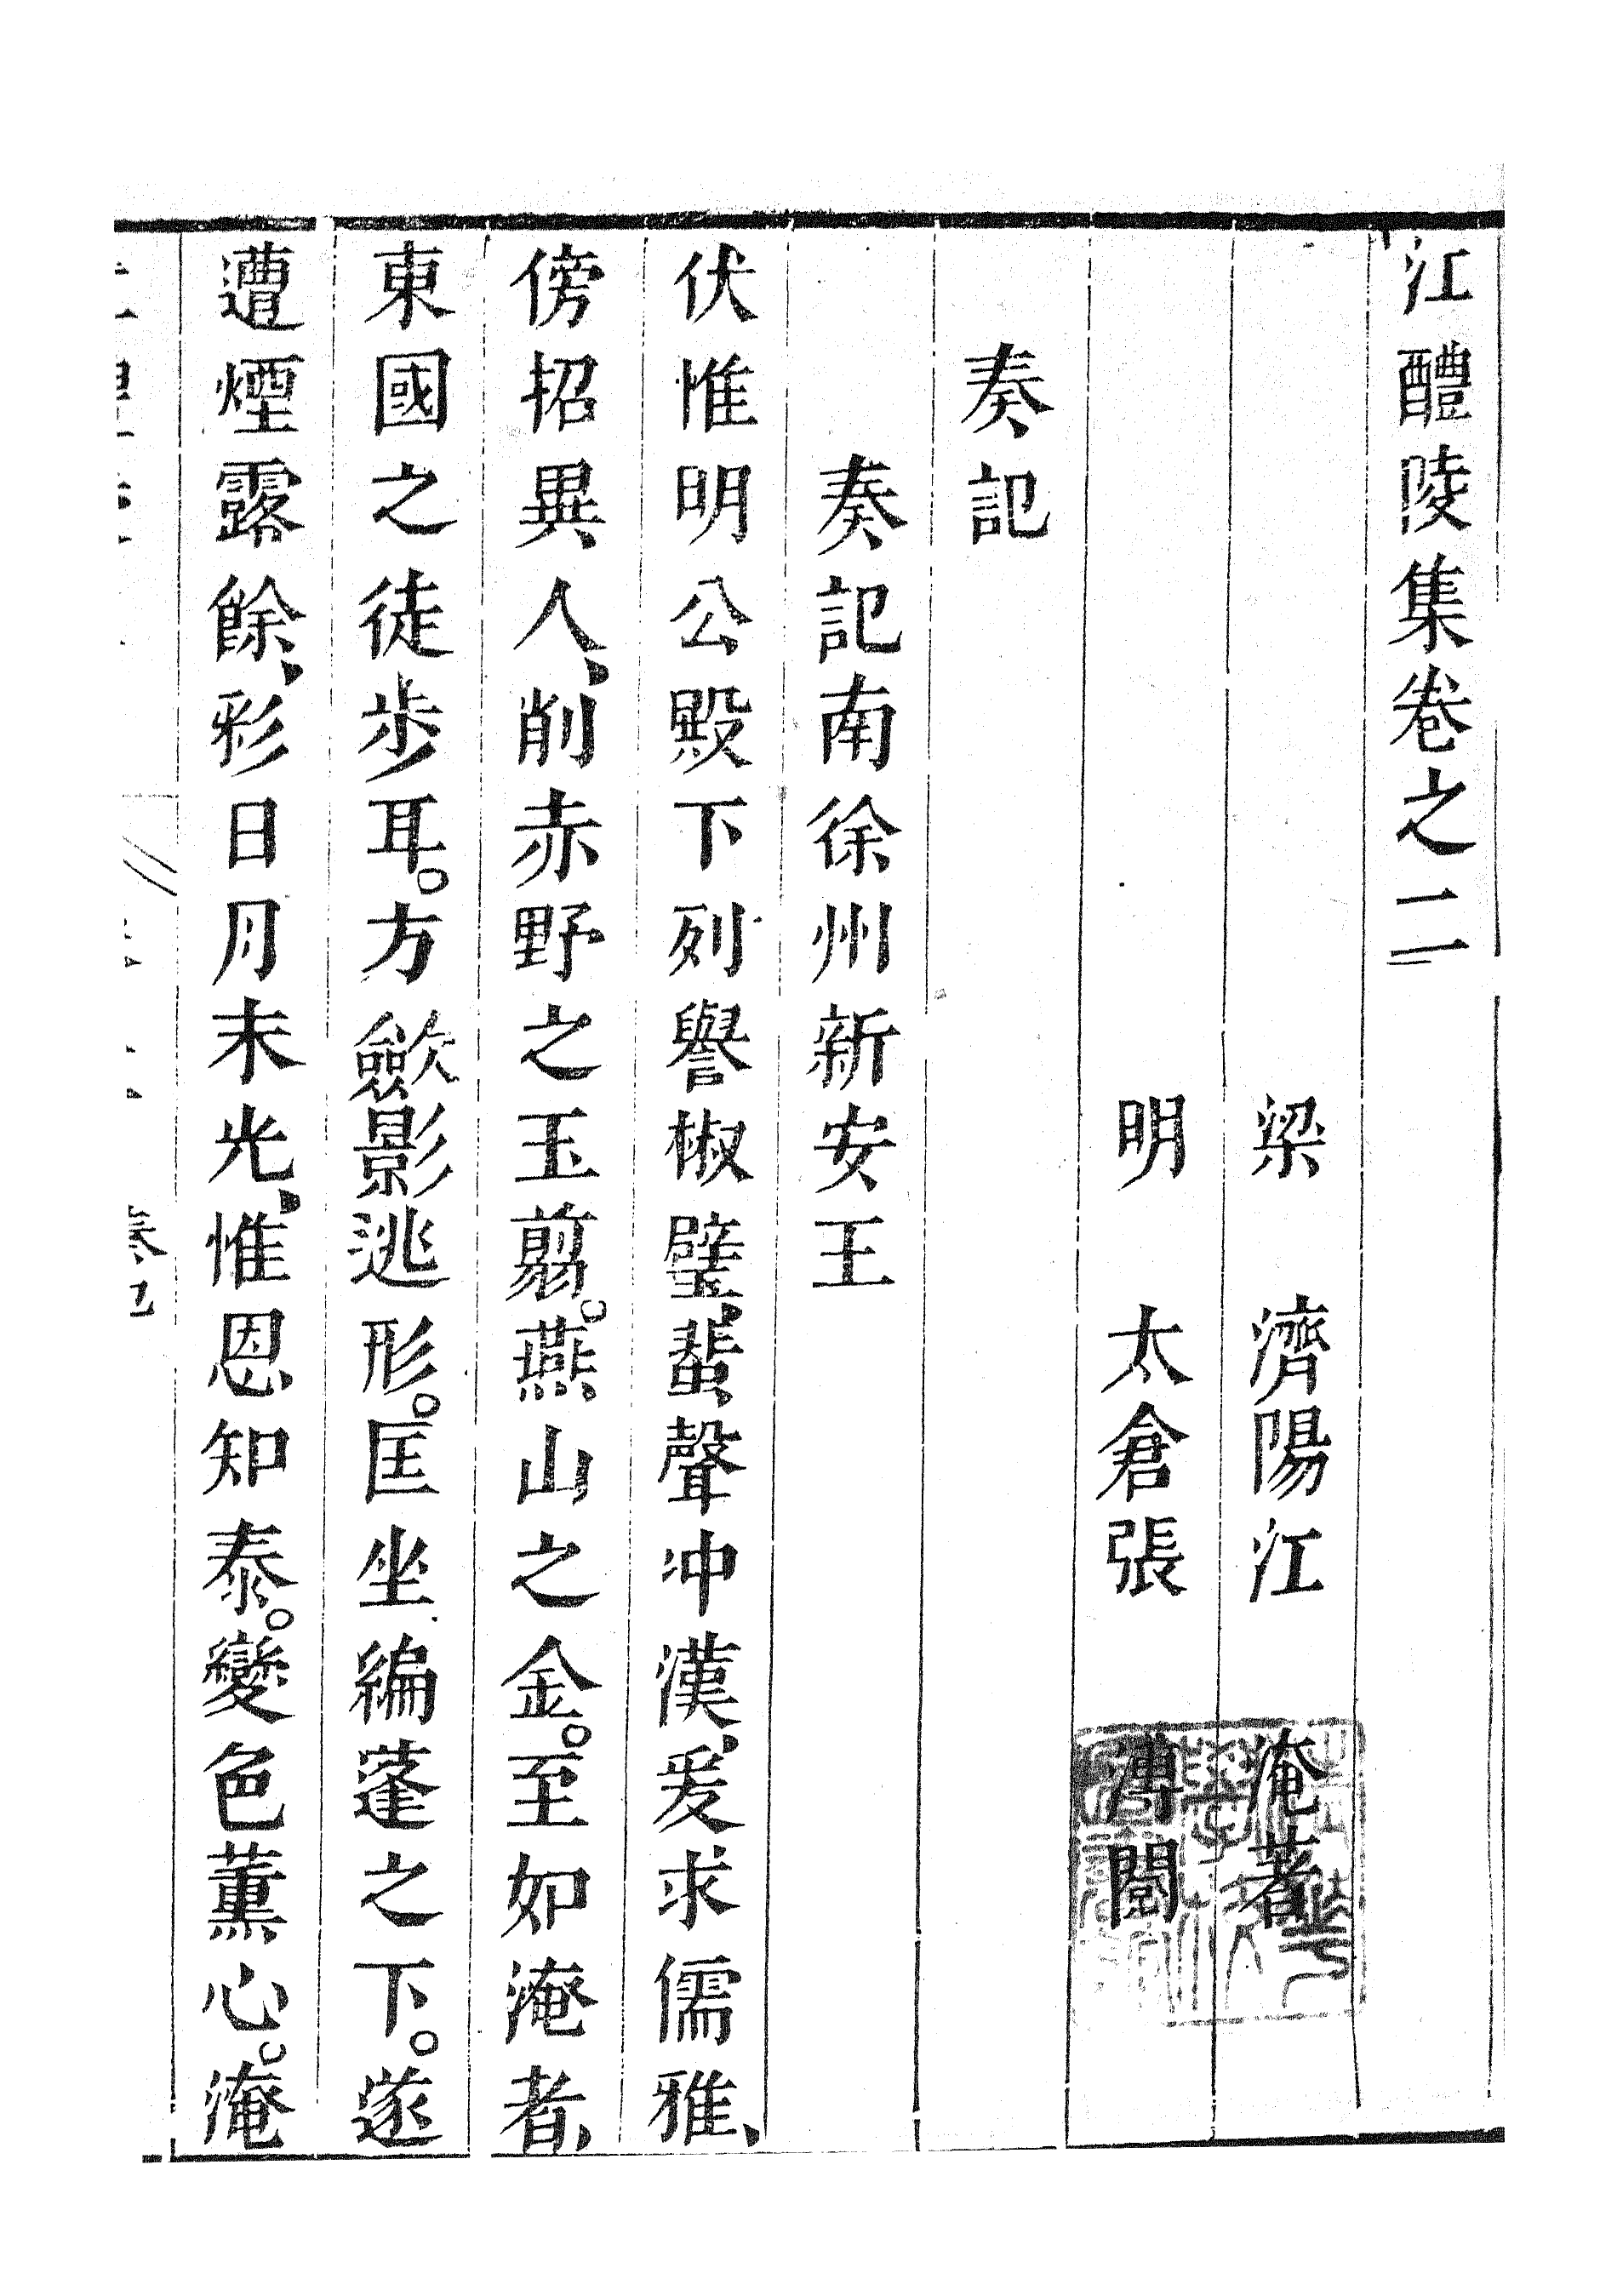 江醴陵集卷之二
梁 濟陽江 淹著
明 太倉張 溥閱
奏記
奏記南徐州新安王
伏惟明公殿下列譽椒璧、蜚聲冲漢、爰求儒雅、
傍招異人、削赤野之玉翦。燕山之金。至如淹者、
東國之徒步耳。方歛影逃形。匡坐編蓬之下。遂
遭煙露餘、彩日月末光、惟恩知泰。變色薰心。淹